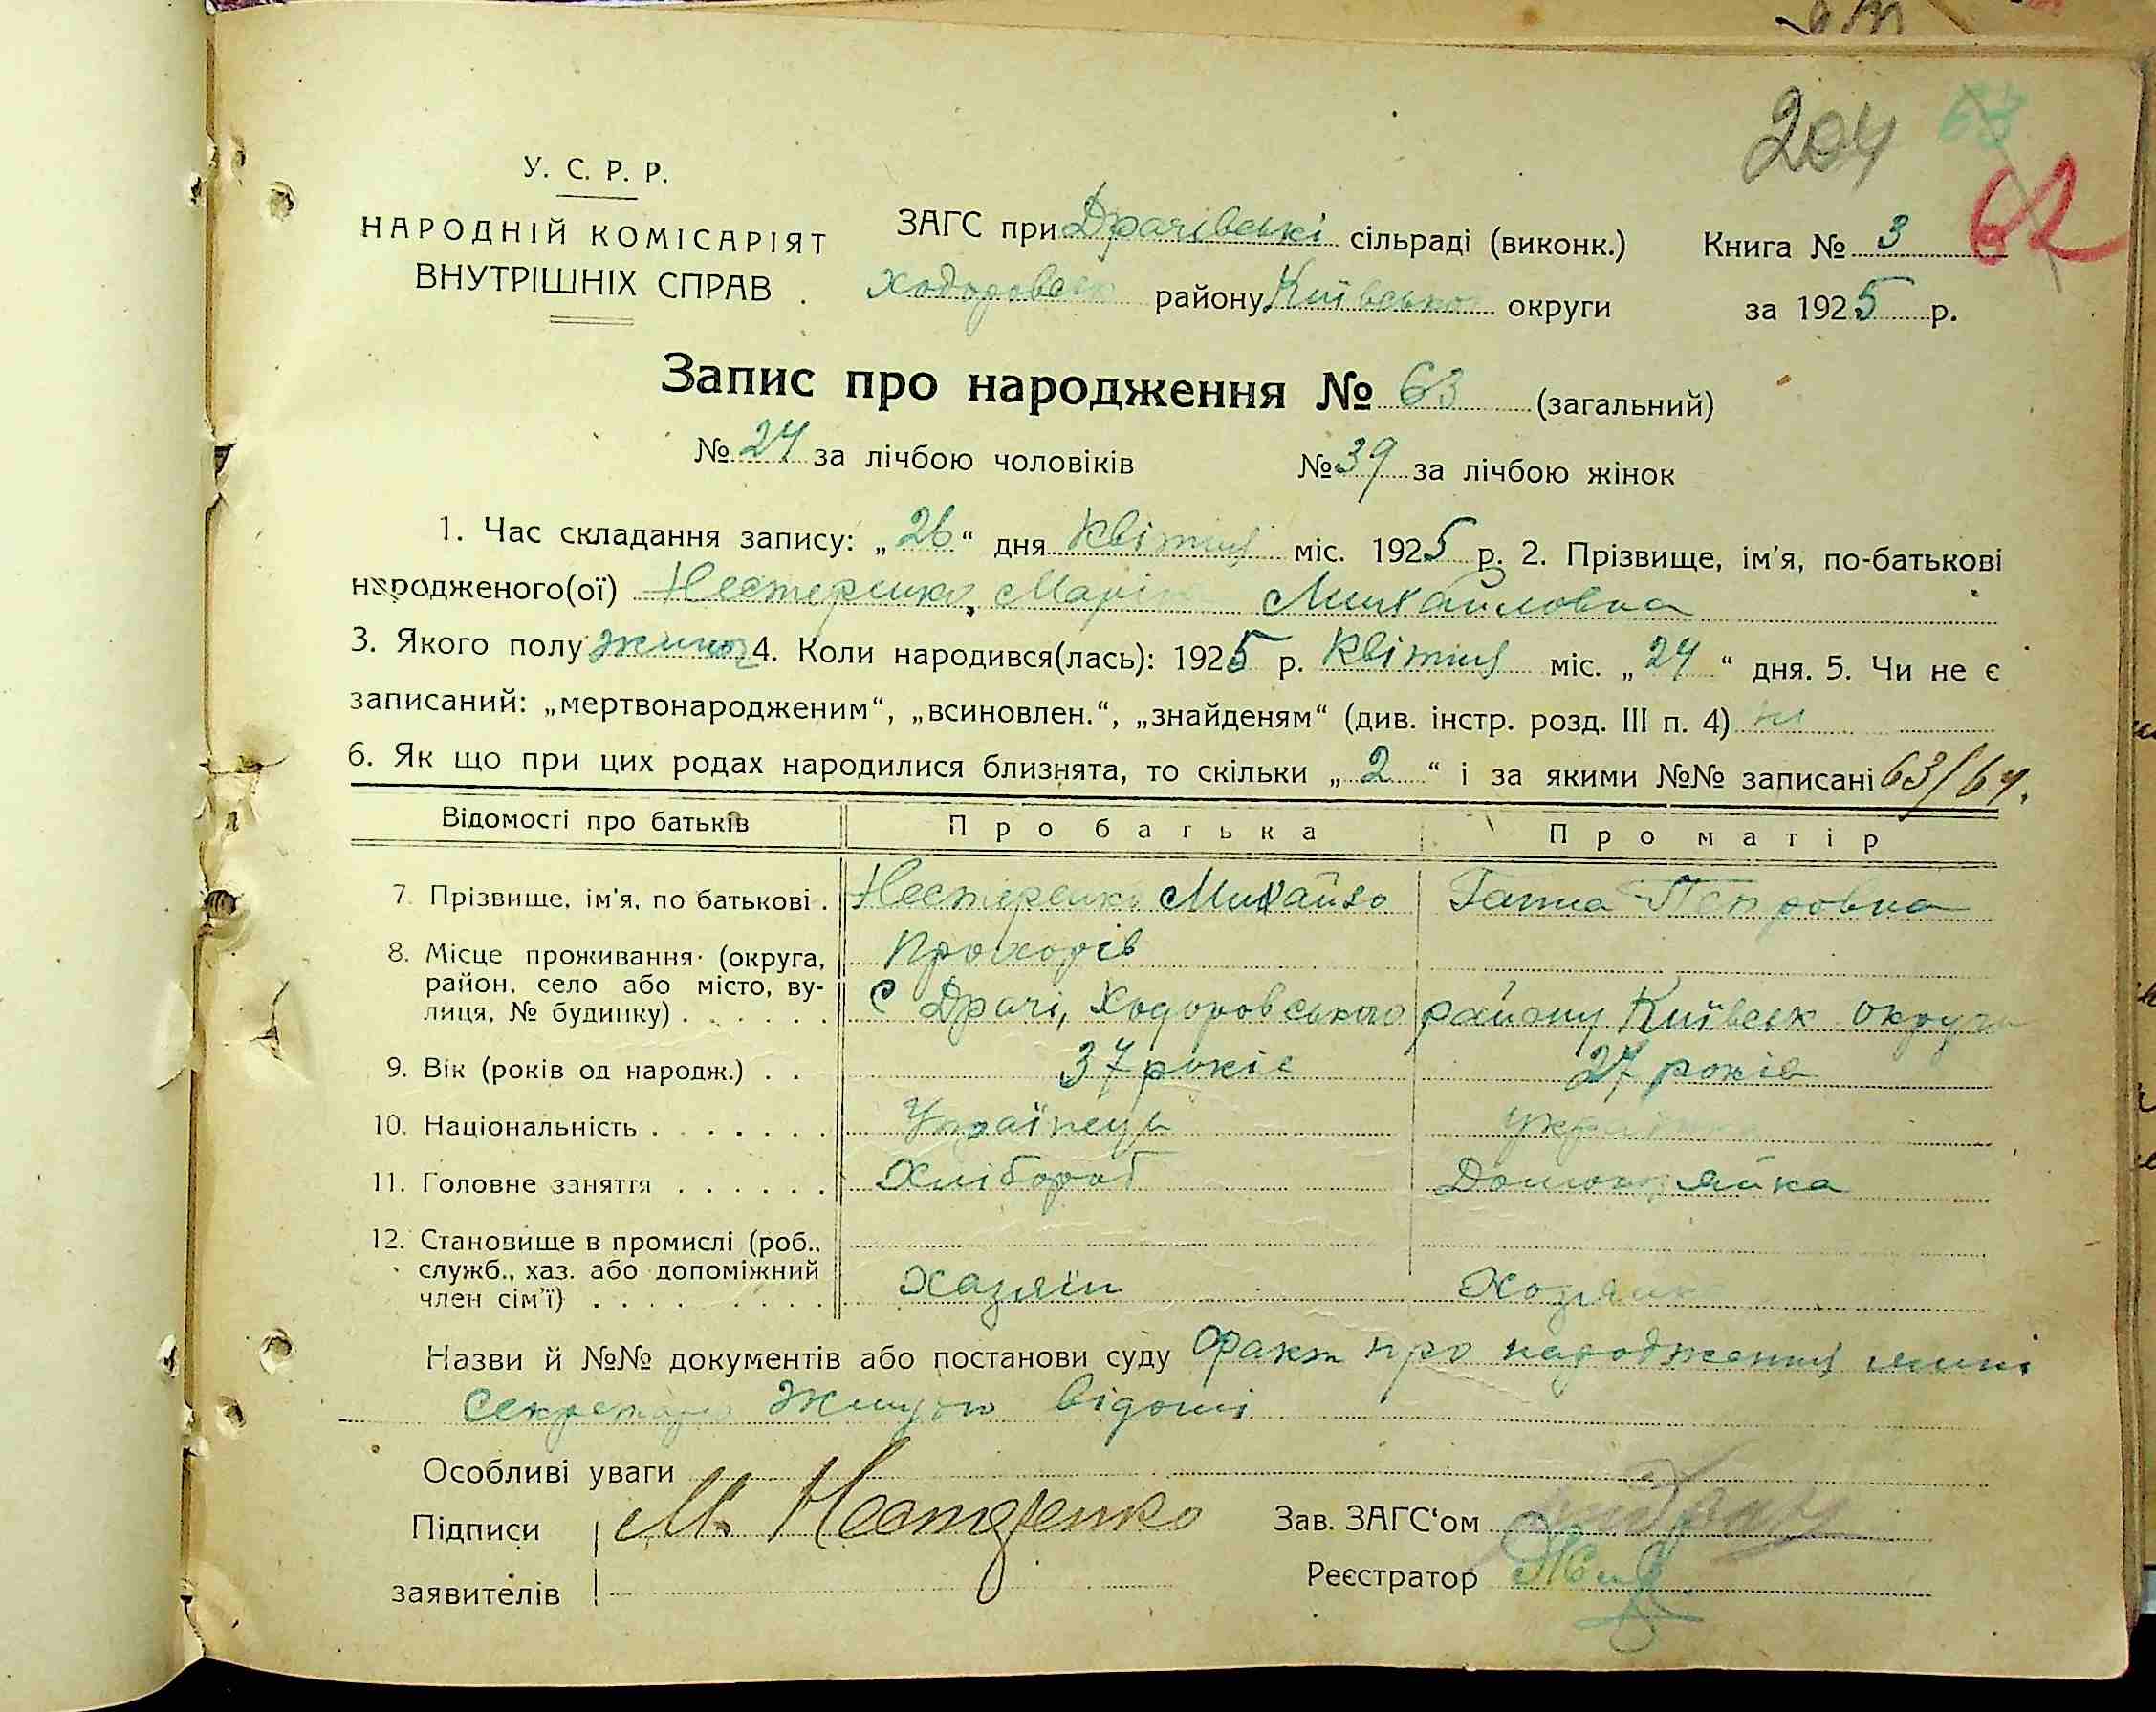 204 63 62
У. С. Р. Р.
НАРОДНІЙ КОМІСАРІЯТ
ВНУТРІШНІХ СПРАВ
ЗАГС при Драчівські сільраді (виконк.) Книга № 3
Ходоровськ району Київсько округи за 1925 р.
Запис про народження № 63 (загальний)
№ 24 за лічбою чоловіків № 39 за лічбою жінок
1. Час складання запису: „26“ дня Квітня міс. 1925 р. 2. Прізвище, ім'я, по-батькові
народженого(ої) Нестеренко, Марія Михайловна
3. Якого полу жиноч 4. Коли народився(лась): 1925 р. Квітня міс. „24“ дня. 5. Чи не є
записаний: „мертвонародженим“, „всиновлен.“, „знайденям“ (див. інстр. розд. III п. 4) ні
6. Як що при цих родах народилися близнята, то скільки „2“ і за якими №№ записані 63/64.
Відомості про батьків Про батька Про матір
7. Прізвище, ім'я, по батькові . Нестеренко Михайло Ганна Петровна
Прохорів
8. Місце проживання (округа, район, село або місто, ву-
лиця, № будинку) . . . . . . С Драчі, Ходоровського району Київськ округи
9. Вік (років од народж.) . . 37 років 27 років
10. Національність . . . . . . . Українець Українка
11. Головне заняття . . . . . . Хлібороб Домохазяйка
12. Становище в промислі (роб.,
служб., хаз. або допоміжний
член сім'ї) . . . . . . . . Хазяїн Хозяйк
Назви й №№ документів або постанови суду Факт про народження мині
секретарю відомі
Особливі уваги
Підписи М. Нестеренко Зав. ЗАГС‘ом
заявителів Реєстратор